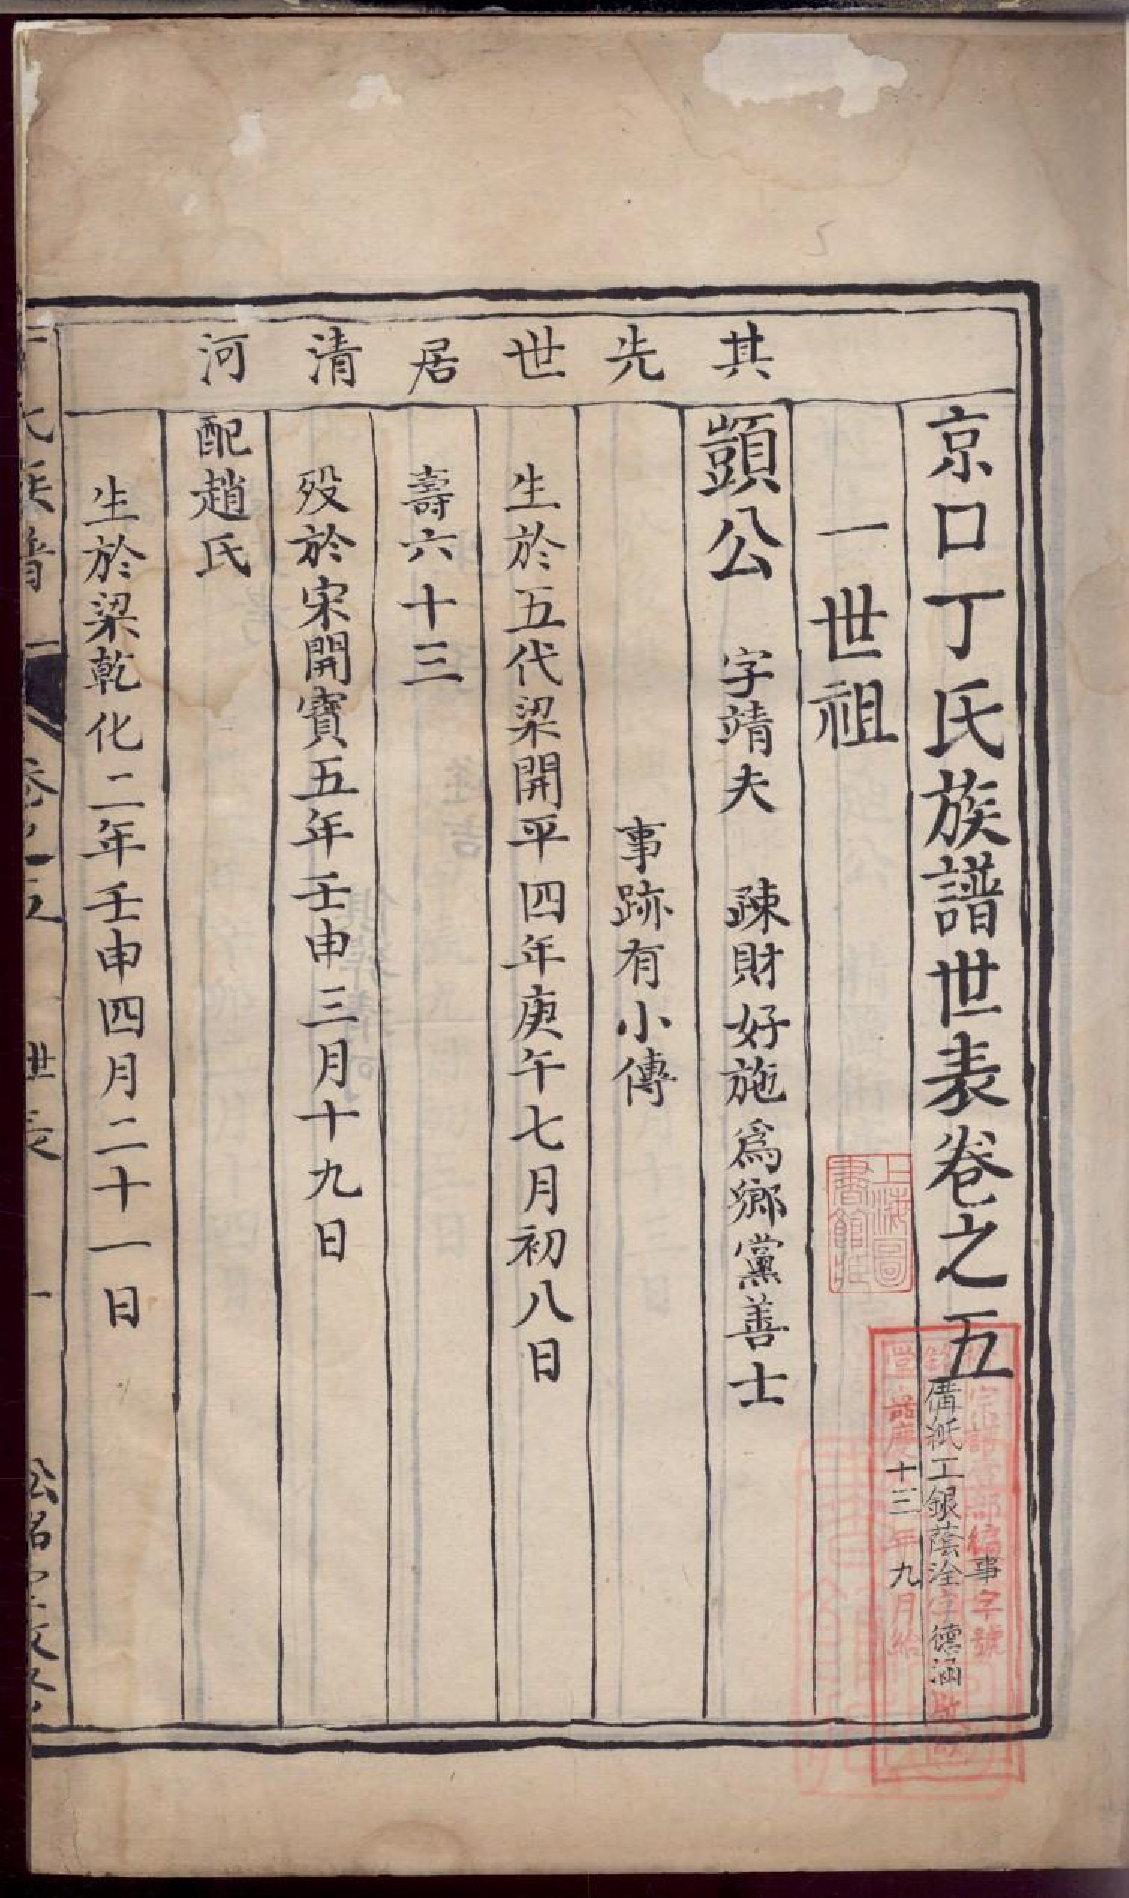 京口丁氏族譜世表卷之五
一世祖
其先世居清河
顗公 字靖夫 疎財好施爲鄉黨善士
事跡有小傳
生於五代梁開平四年庚午七月初八日
壽六十三
歿於宋開寶五年壬申三月十九日
配趙氏
生於梁乾化二年壬申四月二十一日
上海圖
書館藏
宗譜壹部編事字號
備紙工銀蔭洤字德涵
十三年九月給
氏族譜
卷之五
世表
一